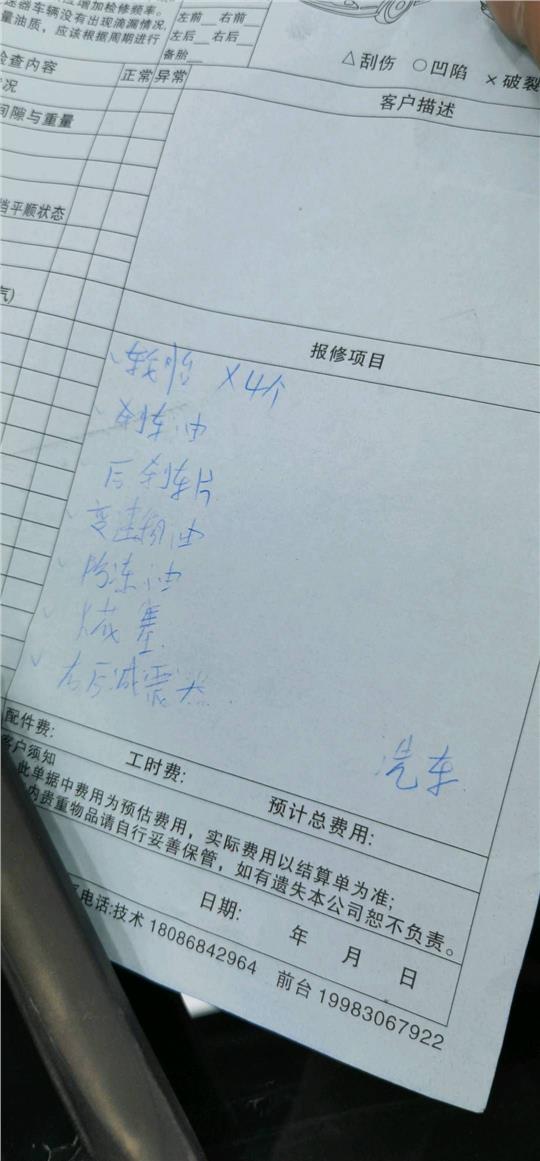 应增加检修频率。
速器车辆没有出现滴漏情况,
量油质，应该根据周期进行
左前 右前
左后 右后
备胎
△刮伤 ○凹陷 ×破裂
检查内容 正常 异常
客户描述
状况
间隙与重量
挡平顺状态
气)
报修项目
轮胎 ×4个
刹车油
后刹车片
变速箱油
防冻油
火花塞
右后减震
汽车
配件费: 工时费: 预计总费用:
客户须知
此单据中费用为预估费用，实际费用以结算单为准;
内贵重物品请自行妥善保管，如有遗失本公司恕不负责。
日期: 年 月 日
电话:技术 18086842964 前台 19983067922